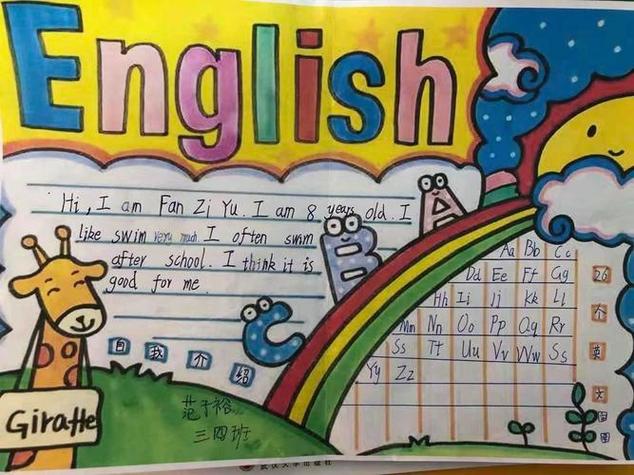 English
Hi, I am Fan Zi Yu. I am 8 years old. I
like swim very much I often swim
after school. I think it is
good for me
A
B
C
自我介绍
Giraffe
三四班
Aa Bb Cc
Dd Ee Ff Gg
Hh Ii Jj Kk Ll
Mm Nn Oo Pp Qq Rr
Ss Tt Uu Vv Ww Ss
Yy Zz
26个英文
武汉大学出版社